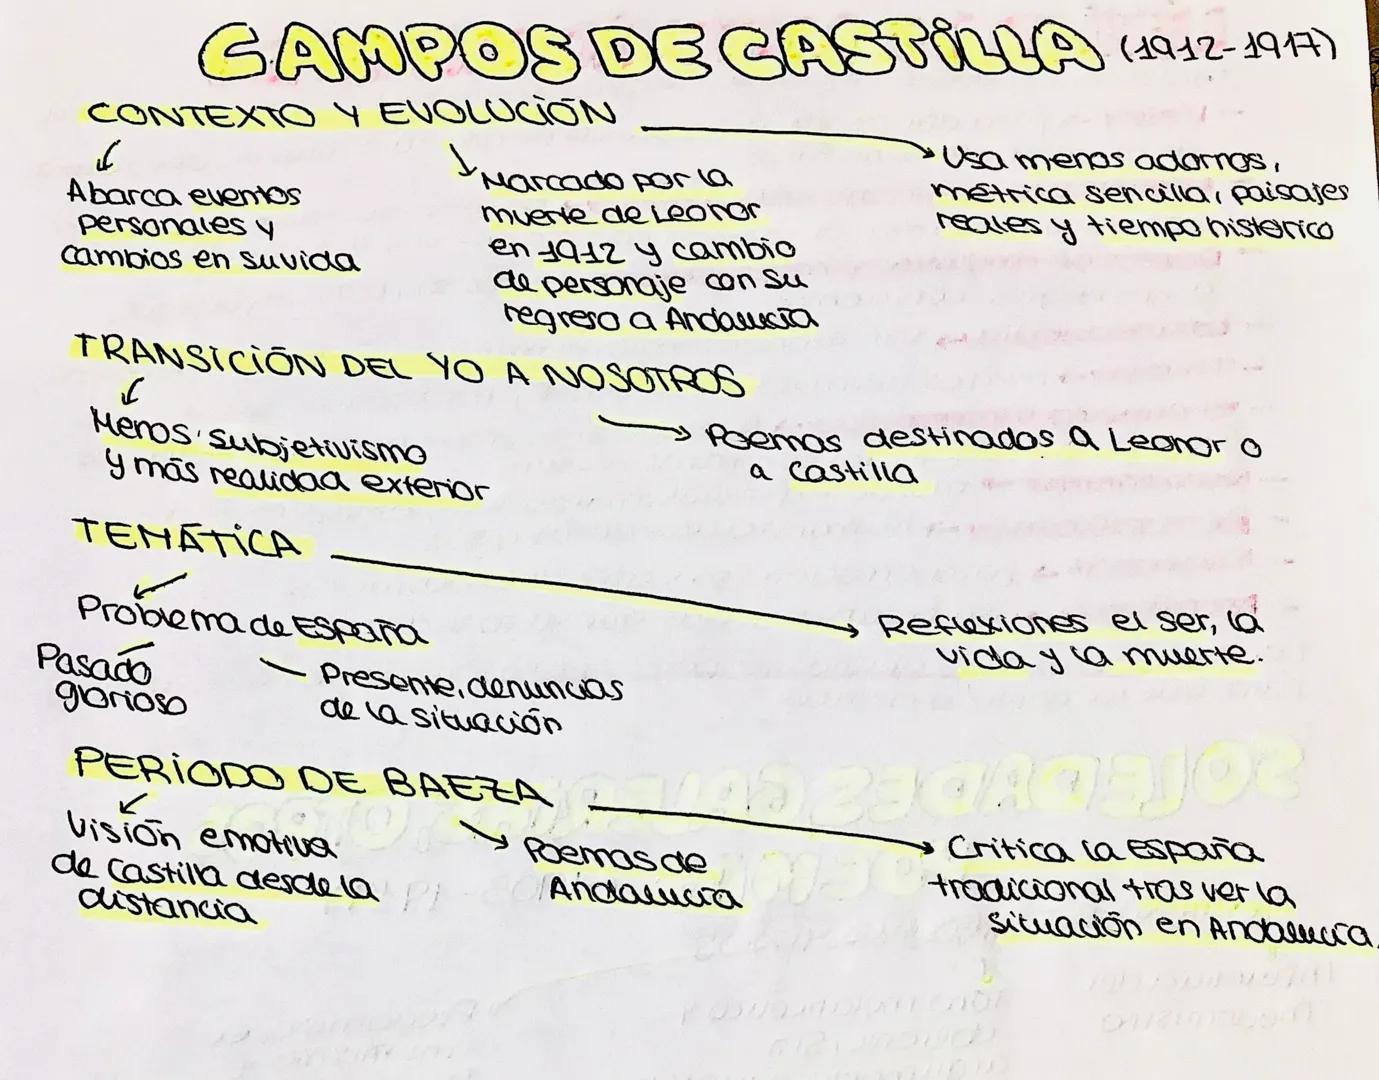 CAMPOS DE CASTILLA (1912-1917)
CONTEXTO Y EVOLUCIÓN
Abarca eventos
personales y
cambios en su vida
Marcado por la
muerte de Leonor
en 1912 y cambio
de personaje con su
regreso a Andalucía
Usa menos adornos,
métrica sencilla, paisajes
reales y tiempo historico
TRANSICIÓN DEL YO A NOSOTROS
Menos subjetivismo
y más realidad exterior
Poemas destinados a Leonor o
a Castilla
TEMÁTICA
Problema de España
Pasado
glorioso
Presente, denuncias
de la situación
Reflexiones el ser, la
vida y la muerte.
PERIODO DE BAEZA
Visión emotiva
de Castilla desde la
distancia
Poemas de
Andalucía
Critica la España
tradicional tras ver la
situación en Andalucía.